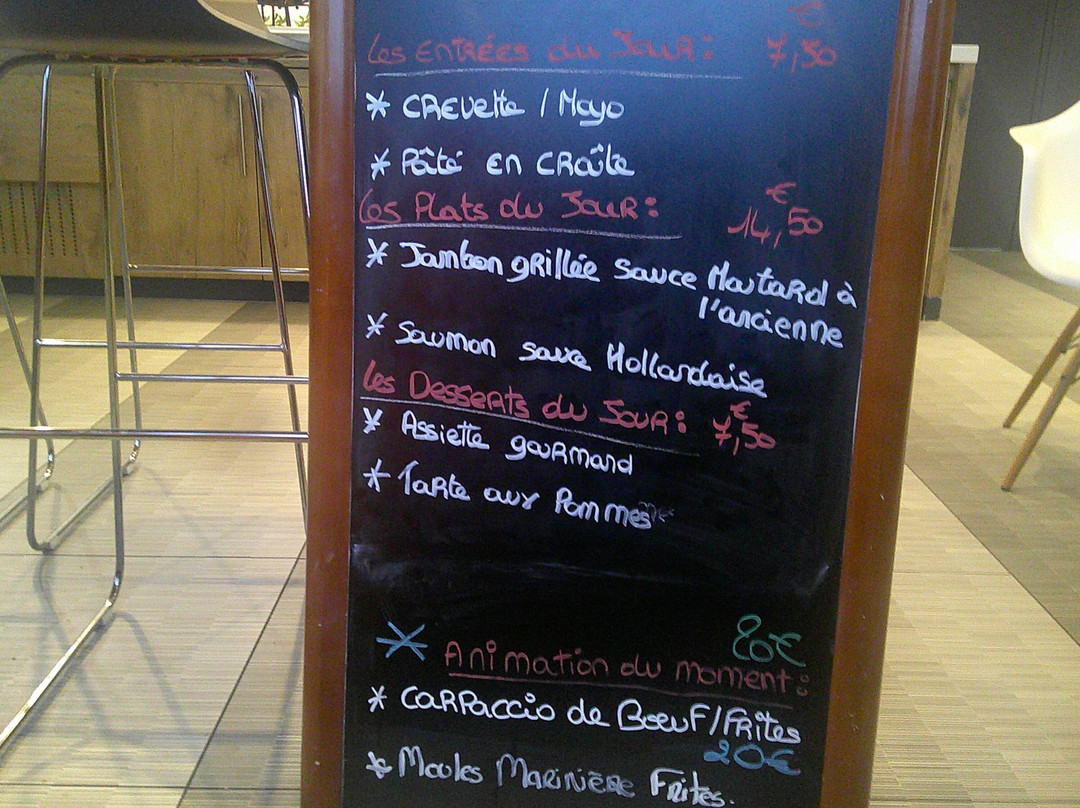 €
Les Entrées du Jour : 7,50
* Crevette / Mayo
* Pâté en croûte
€
Les Plats du Jour : 14,50
* Jambon grillée sauce Moutard à
l'ancienne
* Saumon sauce Hollandaise
€
Les Desserts du Jour : 7,50
* Assiette gourmand
* Tarte aux Pommes
20€
* Animation du moment :
* Carpaccio de Boeuf/Frites
20€
* Moules Marinière Frites.